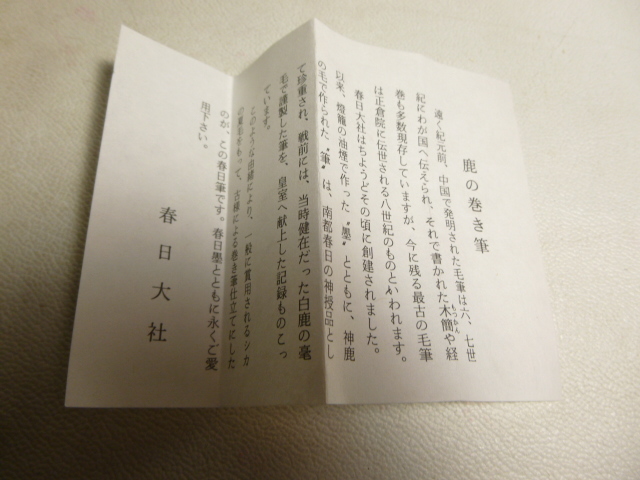 鹿の巻き筆
遠く紀元前、中国で発明された毛筆は六、七世
紀にわが国へ伝えられ、それで書かれた木簡や経
もっかん
巻も多数現存していますが、今に残る最古の毛筆
は正倉院に伝世される八世紀のものといわれます。
春日大社はちょうどその頃に創建されました。
以来、燈籠の油煙で作った〝墨〟とともに、神鹿
の毛で作られた〝筆〟は、南都春日の神授品とし
て珍重され、戦前には、当時健在だった白鹿の毫
毛で謹製した筆を、皇室へ献上した記録ものこっ
ています。
このような由緒により、一般に賞用されるシカ
をもって、古様による巻き筆仕立てにした
のが、この春日筆です。春日墨とともに永くご愛
用下さい。
春日大社